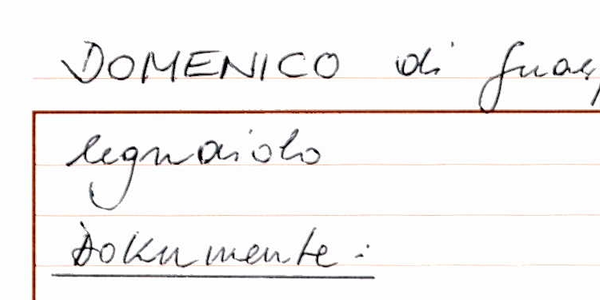 DOMENICO di
legnaiolo
Dokumente: